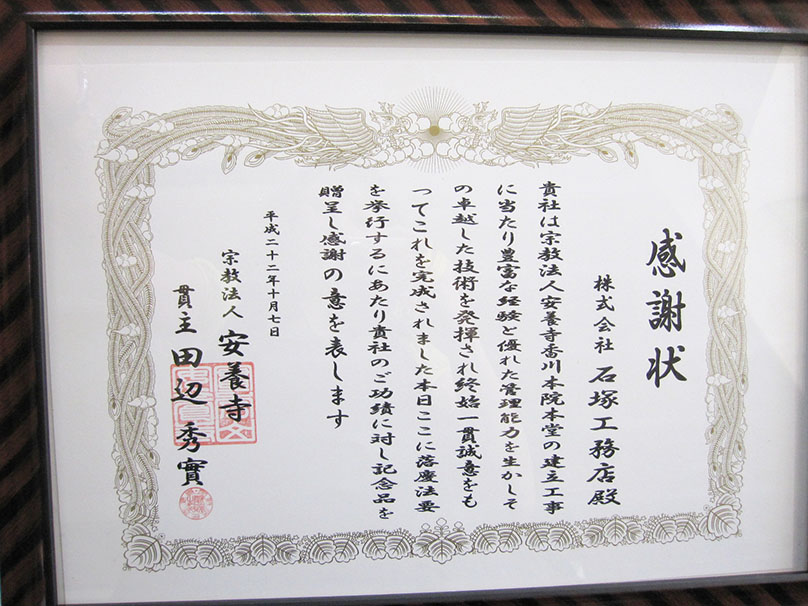 感謝状
株式会社 石塚工務店殿
貴社は宗教法人安養寺香川本院本堂の建立工事
に当たり豊富な経験と優れた管理能力を生かしそ
の卓越した技術を発揮され終始一貫誠意をも
ってこれを完成されました本日ここに落慶法要
を挙行するにあたり貴社のご功績に対し記念品を
贈呈し感謝の意を表します
平成二十二年十月七日
宗教法人 安養寺
貫主 田辺秀實